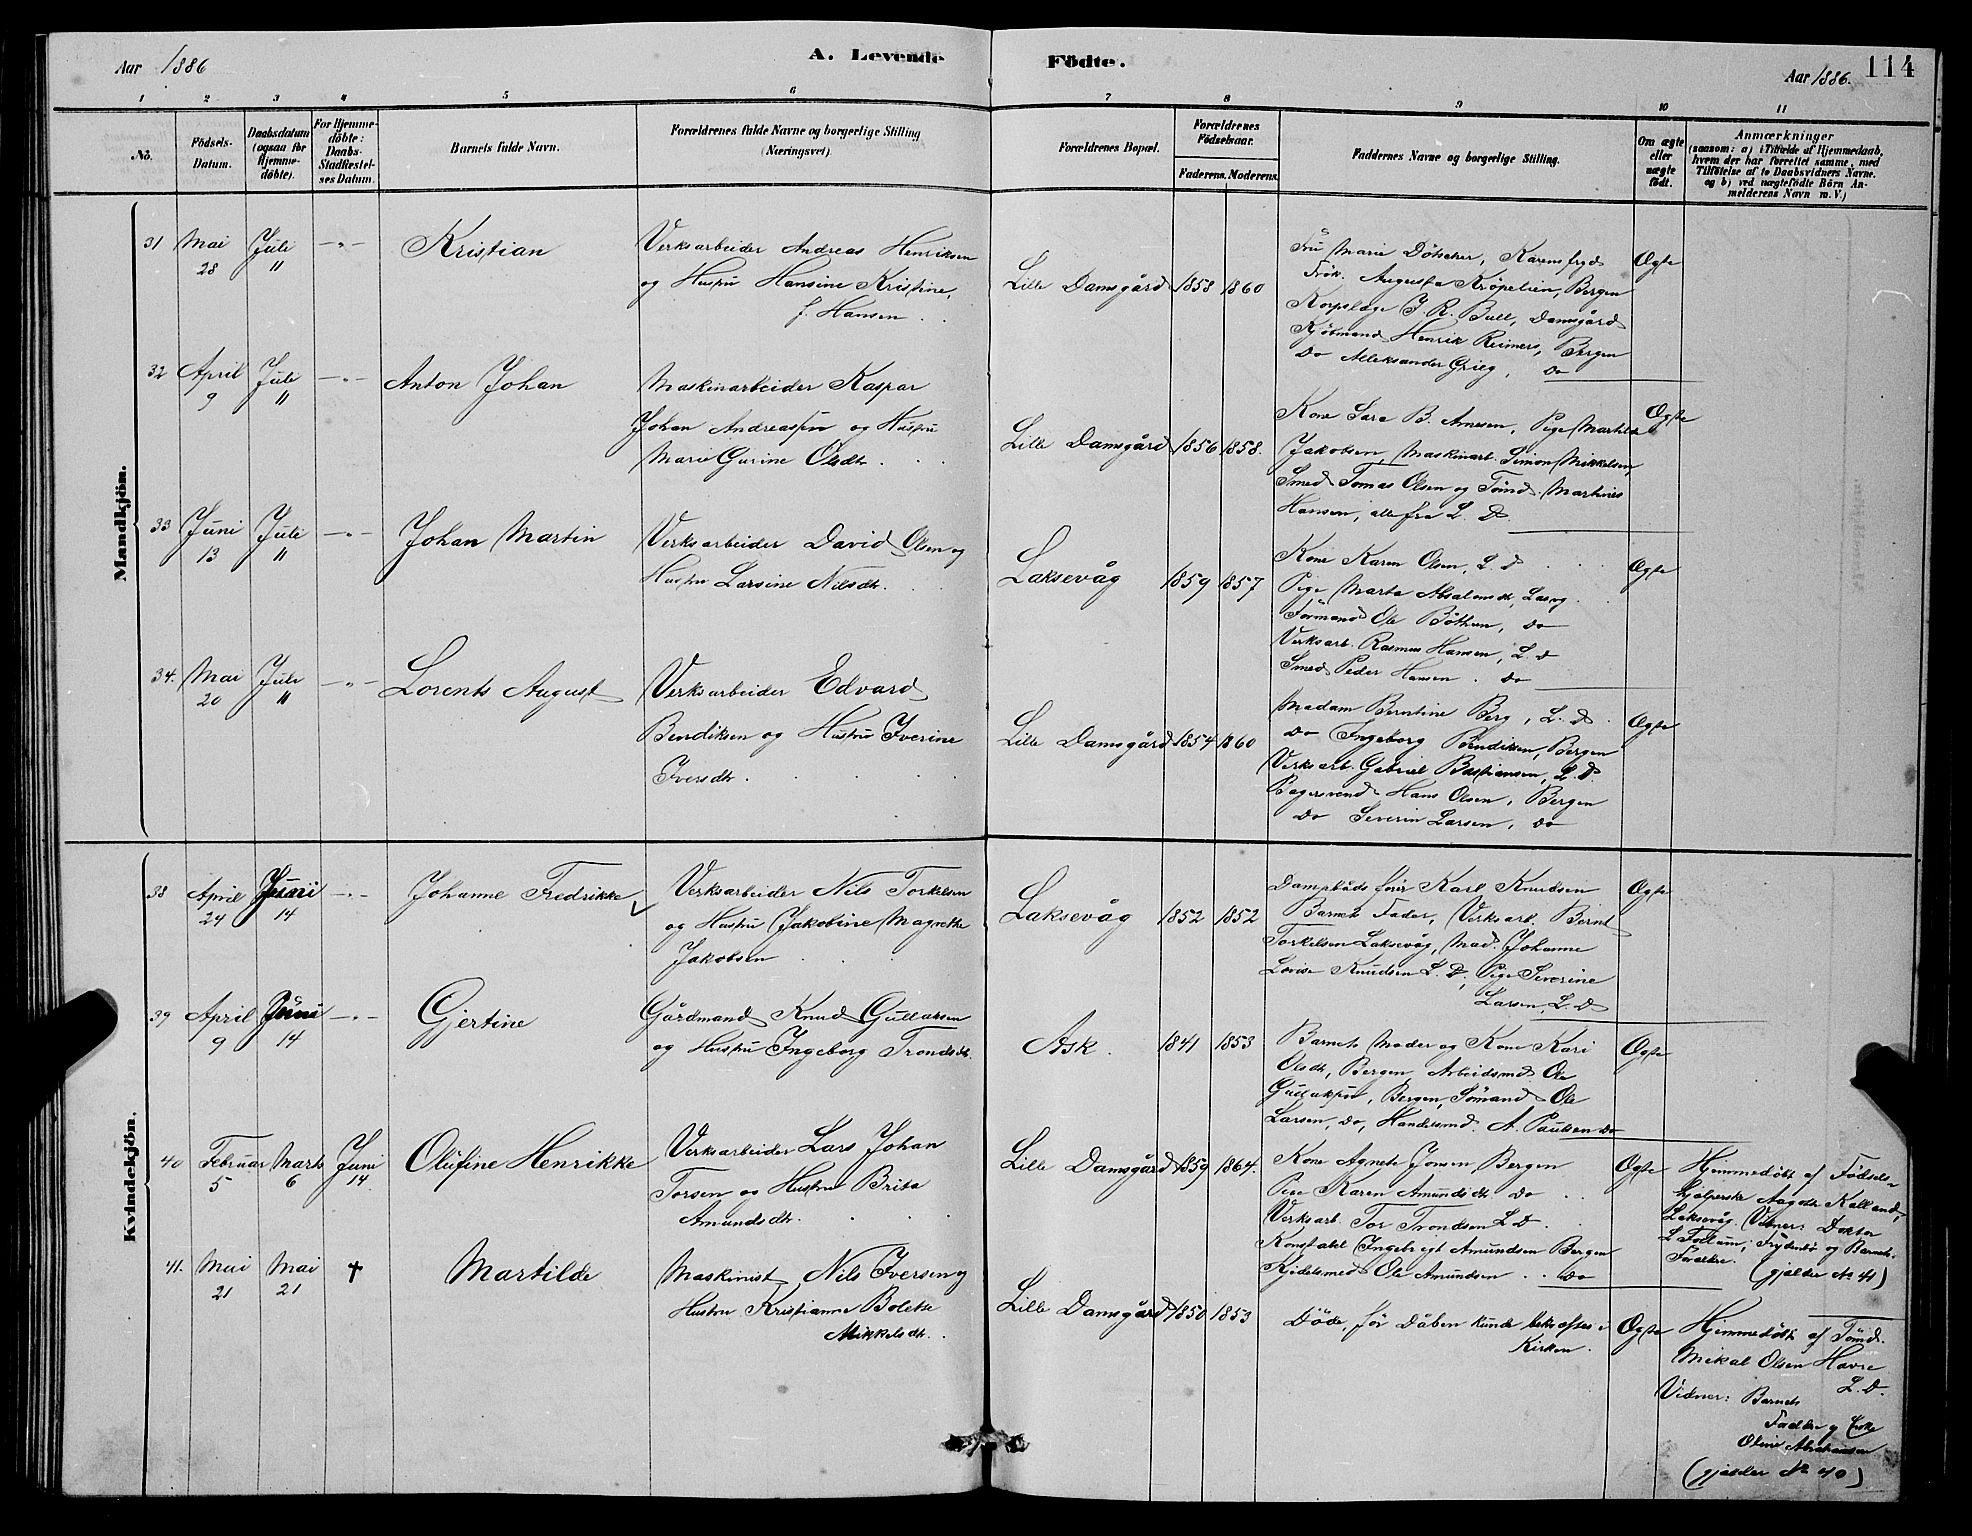 Aar 1886
A. Levende Födte.
Aar 1886.
114
1 2 3 4 5 6 7 8 9 10 11
No.
Födsels-
Datum.
Daabsdatum
(ogsaa for
Hjemme-
döbte).
For Hjemme-
döbte:
Daabs-
Stadfæstel-
ses Datum.
Barnets fulde Navn.
Forældrenes fulde Navne og borgerlige Stilling
(Næringsvei).
Forældrenes Bopæl.
Forældrenes
Födselsaar.
Faderens. Moderens.
Faddernes Navne og borgerlige Stilling.
Om ægte
eller
uægte
födt.
Anmærkninger
(saasom: a) i Tilfælde af Hjemmedaab,
hvem der har forrettet samme, med
Tilföielse af to Daabsvidners Navne.
og b) ved uægtefödte Börn An-
melderens Navn m. V.)
Mandkjön.
31 Mai 28 Juli 11 -"- Kristian
Verksarbeider Andreas Henriksen
og Hustru Hansine Kristine,
f. Hansen
Lille Damsgård 1858 1860
Fru Marie Dötscher, Karensfryd
Frök. Augusta Kröpelien, Bergen
Korpslæge J. R. Bull, Damsgård
Kjöbmand Henrik Reimers, Bergen
Do Alleksander Grieg, Do
Ægte
32 April 9 Juli 11 -"- Anton Johan
Maskinarbeider Kaspar
Johan Andreassen og Hustru
Marie Gurine Olsdtr.
Lille Damsgård 1856 1858.
Kone Sara B. Arnesen, Pige Martilde
Jakobsen, Maskinarb. Simon Mikkelsen,
Smed Tomas Olsen og Tömd. Martines
Hansen, alle fra L. D.
Ægte
33 Juni 13 Juli 11 -"- Johan Martin
Verksarbeider David Olsen og
Hustru Larsine Nilsdtr.
Laksevåg 1859 1857
Kone Karen Olsen, L. D
Pige Marta Absalonsdtr, Laxvg
Formand Ole Böthun, Do
Verksarb. Rasmus Hansen, L. D
Smed Peder Hansen. Do
Ægte
34. Mai 20 Juli 11 -"- Lorents August
Verksarbeider Edvard
Bendiksen og Hustru Iverine
Iversdtr.
Lille Damsgård 1854 1860
Madam Berntine Berg, L. D
Do Ingeborg Bendiksen, Bergen
Verksarb. Gabriel Bastiansen, L. D.
Bagersvend Hans Olsen, Bergen
Do Severin Larsen, Do
Ægte
Kvindekjön.
38 April 24 Juni 14 -"- Johanne Fredrikke
Verksarbeider Nils Torkelsen
og Hustru Jakobine Magrethe
Jakobsen
Laksevåg 1852 1852
Dampbåds förer Karl Knudsen
Barnets Fader, Verksarb. Bernt
Torkelsen Laksevåg, Mad. Johanne
Lovise Knudsen L. D, Pige Severine
Larsen, L. D
Ægte
39 April 9 Juni 14 -"- Gjertine
Gårdmand Knud Gullaksen
og Hustru Ingeborg Trondsdtr.
Ask. 1841 1853
Barnets Moder og Kone Kari
Olsdtr, Bergen Arbeidsmd. Ole
Gullaksen, Bergen, Sömand Ole
Larsen, Do, Handelsmd. A. Paulsen Do
Ægte
40 Februar 5 Marts 6 Juni 14 Olufine Henrikke
Verksarbeider Lars Johan
Torsen og Hustru Brita
Amundsdtr.
Lille Damsgård 1859 1864.
Kone Agnete Jonsen Bergen
Pige Karen Amundsdtr Do
Verksarb. Tor Trondsen L. D.
Konstabel Ingebregt Amundsen Bergen
Kjedelsmed Ole Amundsen Do
Ægte
Hjemmedöbt af Födsels-
hjelperske Aagdtr Kalland,
Laksevåg. Vidner: Doktor
L. Tollum, Frydenbö og Barnets
Forældre.
(gjælder No 41)
41. Mai 21 Mai 21 † Martilde
Maskinist Nils Iversen og
Hustru Kristianne Bolette
Mikkelsdtr.
Lille Damsgård 1850 1853
Döde, för Dåben kunde bekræftes i
Kirken.
Ægte
Hjemmedöbt af Tömd.
Mikal Olsen Havre
L. D.
Vidner: Barnets
Fader og Enke
Oline Abrahamsen
(gjælder No 40)